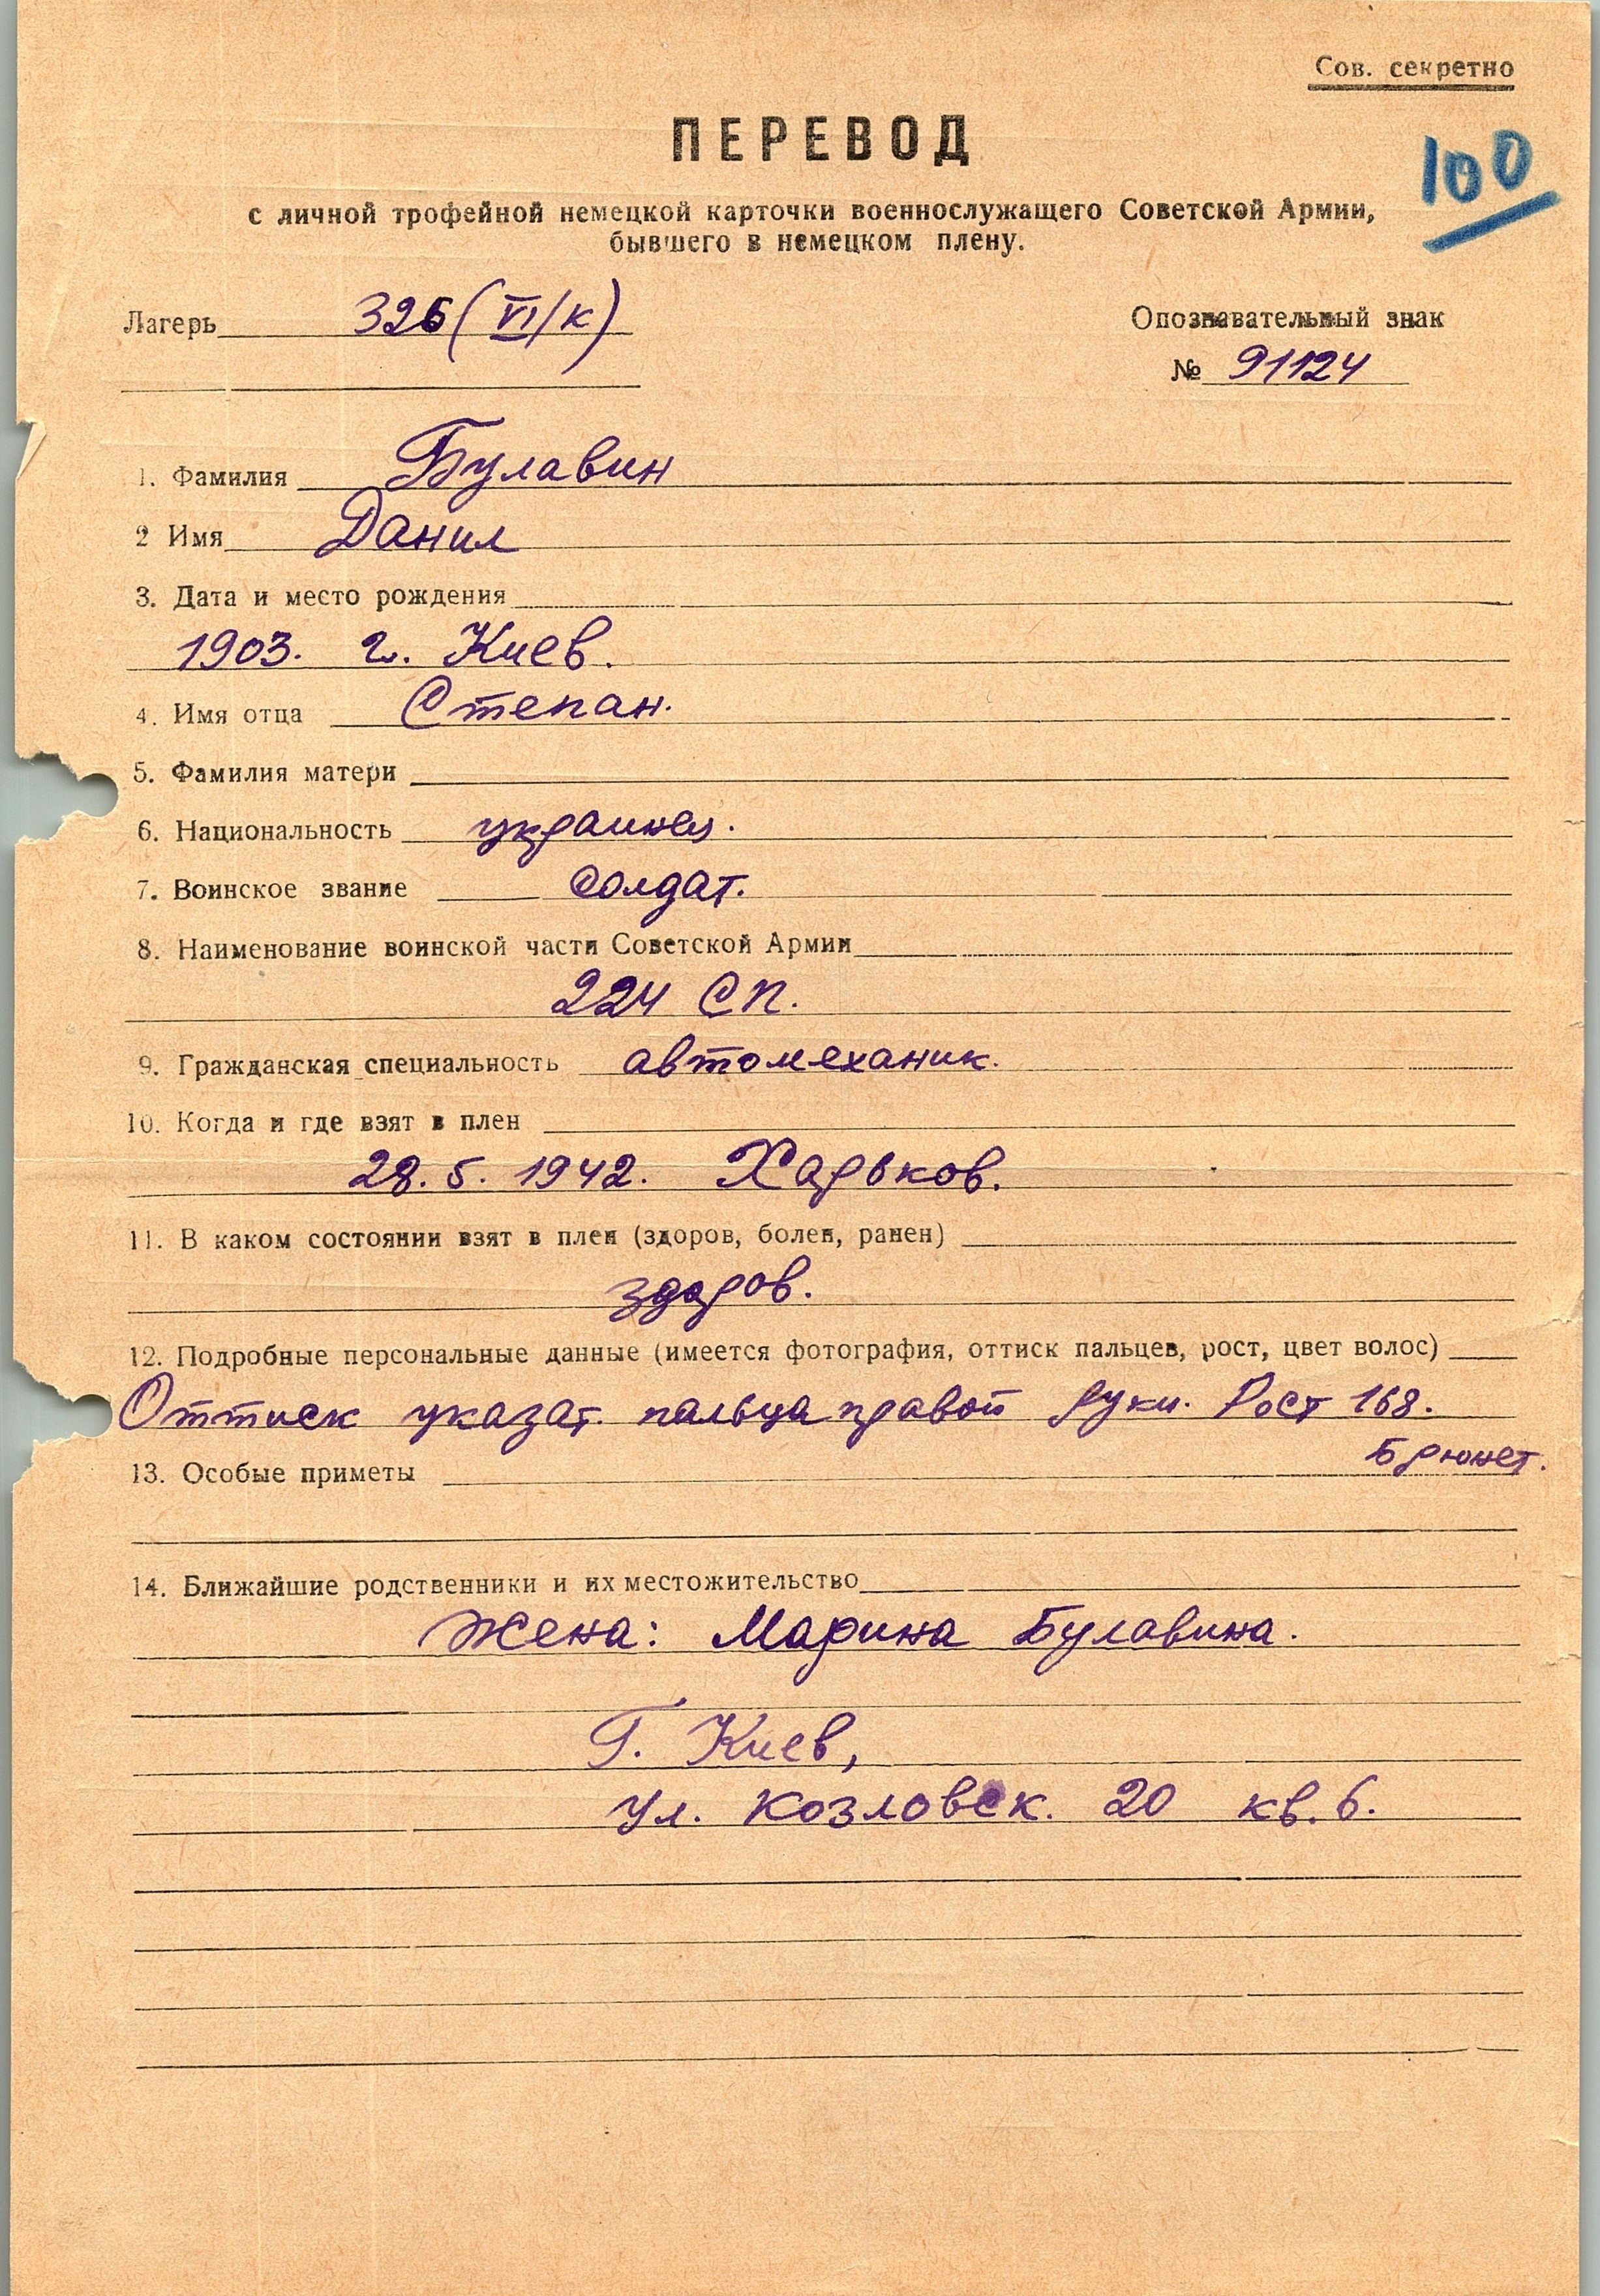 Сов. секретно
ПЕРЕВОД
100
с личной трофейной немецкой карточки военнослужащего Советской Армии,
бывшего в немецком плену.
Лагерь 326 (VI/к)
Опознавательный знак
№ 91124
1. Фамилия Булавин
2 Имя Данил
3. Дата и место рождения
1903. г. Киев.
4. Имя отца Степан.
5. Фамилия матери
6. Национальность украинец.
7. Воинское звание солдат.
8. Наименование воинской части Советской Армии
224 сп.
9. Гражданская специальность автомеханик.
10. Когда и где взят в плен
28. 5. 1942. Харьков.
11. В каком состоянии взят в плен (здоров, болен, ранен)
здоров.
12. Подробные персональные данные (имеется фотография, оттиск пальцев, рост, цвет волос)
Оттиск указат. пальца правой руки. Рост 168.
Брюнет.
13. Особые приметы
14. Ближайшие родственники и их местожительство
Жена: Марина Булавина.
Г. Киев,
ул. Козловск. 20 кв. 6.